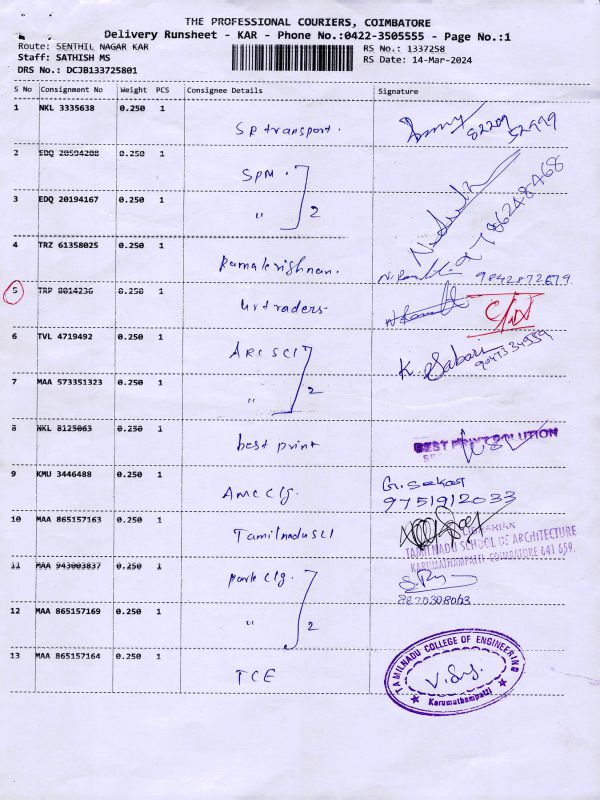 THE PROFESSIONAL COURIERS, COIMBATORE
Delivery Runsheet - KAR - Phone No.:0422-3505555 - Page No.:1
Route: SENTHIL NAGAR KAR
RS No.: 1337258
Staff: SATHISH MS
RS Date: 14-Mar-2024
DRS No.: DCJB133725801
S No Consignment No Weight PCS Consignee Details Signature
1 NKL 3335638 0.250 1 SP transport.
82209 52999
2 EDQ 20594208 0.250 1 SPM.
3 EDQ 20194167 0.250 1 " 2
4 TRZ 61358025 0.250 1 Ramakrishnan.
9842872679
5 TRP 8014236 0.250 1 urtraders
6 TVL 4719492 0.250 1 ARC SCI
K. Sabari
7 MAA 573351323 0.250 1 " 2
8 NKL 8125063 0.250 1 best print
BEST PRINT SOLUTION
9 KMU 3446488 0.250 1 AMC clg.
G. Sekar
9751912033
10 MAA 865157163 0.250 1 Tamilnadu SCI
LIBRARIAN
TAMILNADU SCHOOL OF ARCHITECTURE
KARUMATHAMPATTI, COIMBATORE 641 659.
11 MAA 943003837 0.250 1 park clg.
12 MAA 865157169 0.250 1 " 2
13 MAA 865157164 0.250 1 TCE
TAMILNADU COLLEGE OF ENGINEERING
Karumathampatti